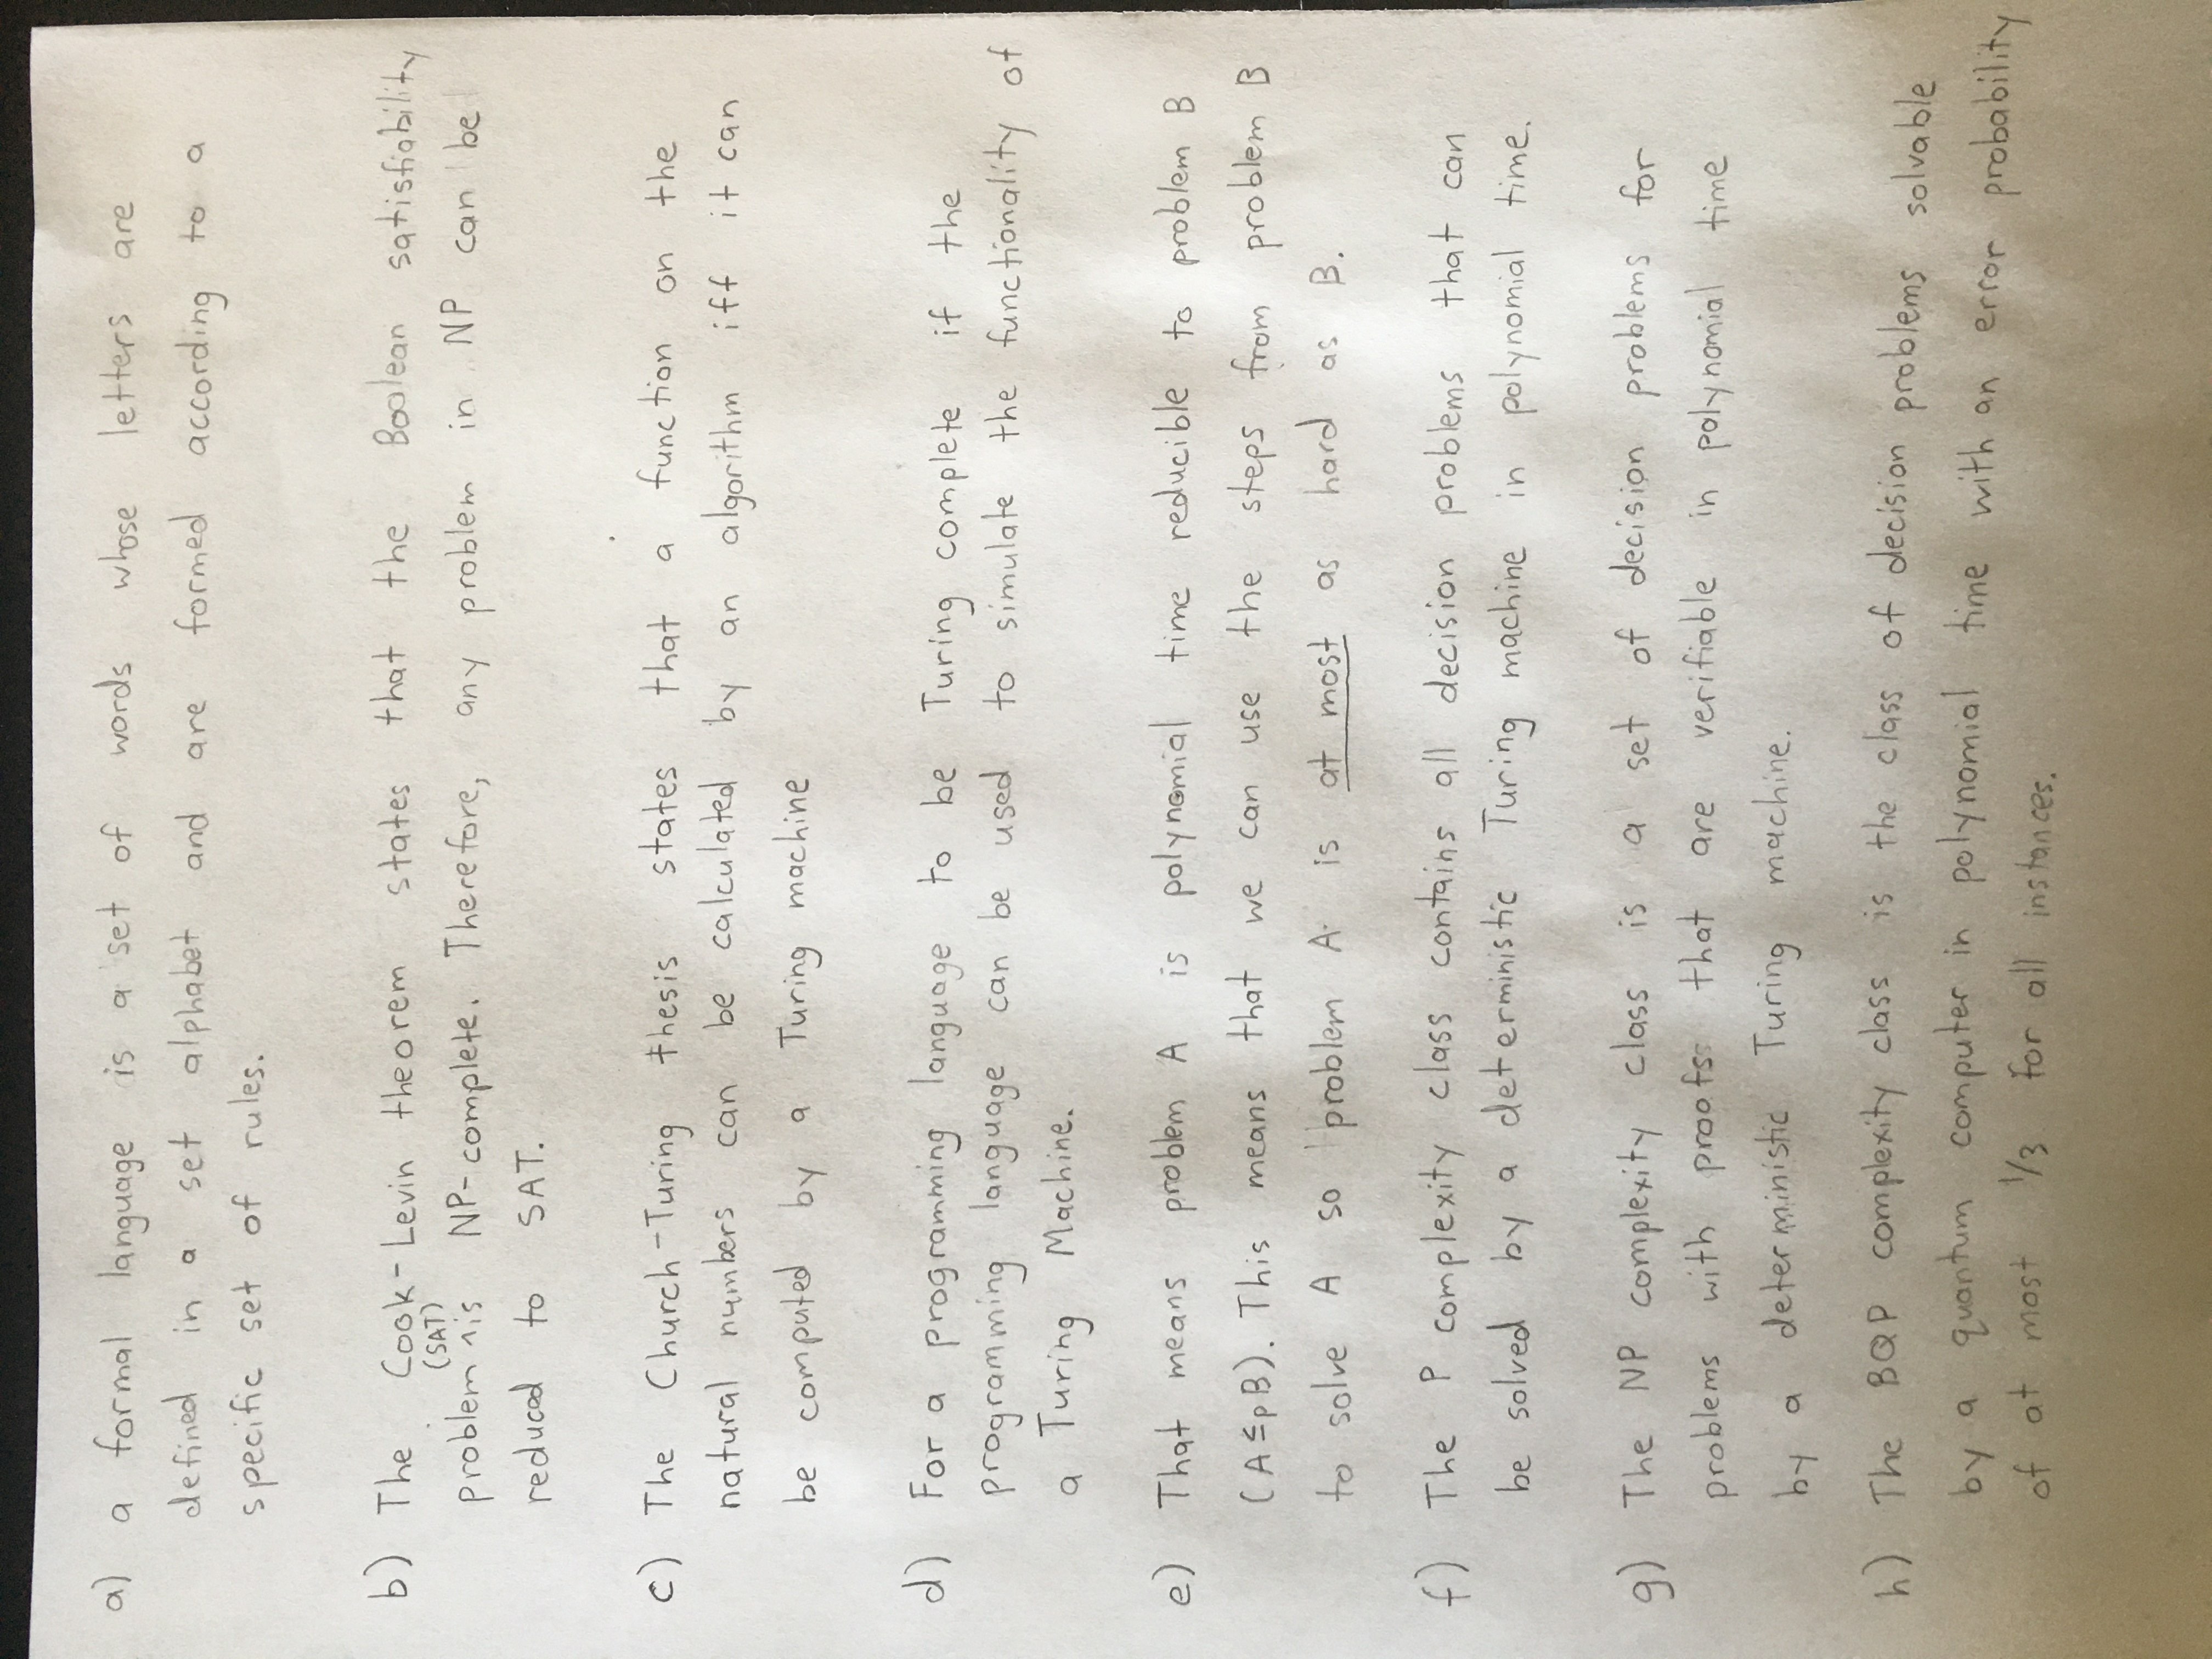 a) a formal language is a set of words whose letters are
defined in a set alphabet and are formed according to a
specific set of rules.
b) The Cook-Levin theorem states that the Boolean satisfiability
(SAT)
problem ^ is NP-complete. Therefore, any problem in NP can be
reduced to SAT.
c) The Church-Turing thesis states that a function on the
natural numbers can be calculated by an algorithm iff it can
be computed by a Turing machine
d) For a programming language to be Turing complete if the
programming language can be used to simulate the functionality of
a Turing Machine.
e) That means problem A is polynomial time reducible to problem B
(A ≤p B). This means that we can use the steps from problem B
to solve A so problem A is at most as hard as B.
f) The P complexity class contains all decision problems that can
be solved by a deterministic Turing machine in polynomial time.
g) The NP complexity class is a set of decision problems for
problems with proofs that are verifiable in polynomial time
by a deterministic Turing machine.
h) The BQP complexity class is the class of decision problems solvable
by a quantum computer in polynomial time with an error probability
of at most 1/3 for all instances.